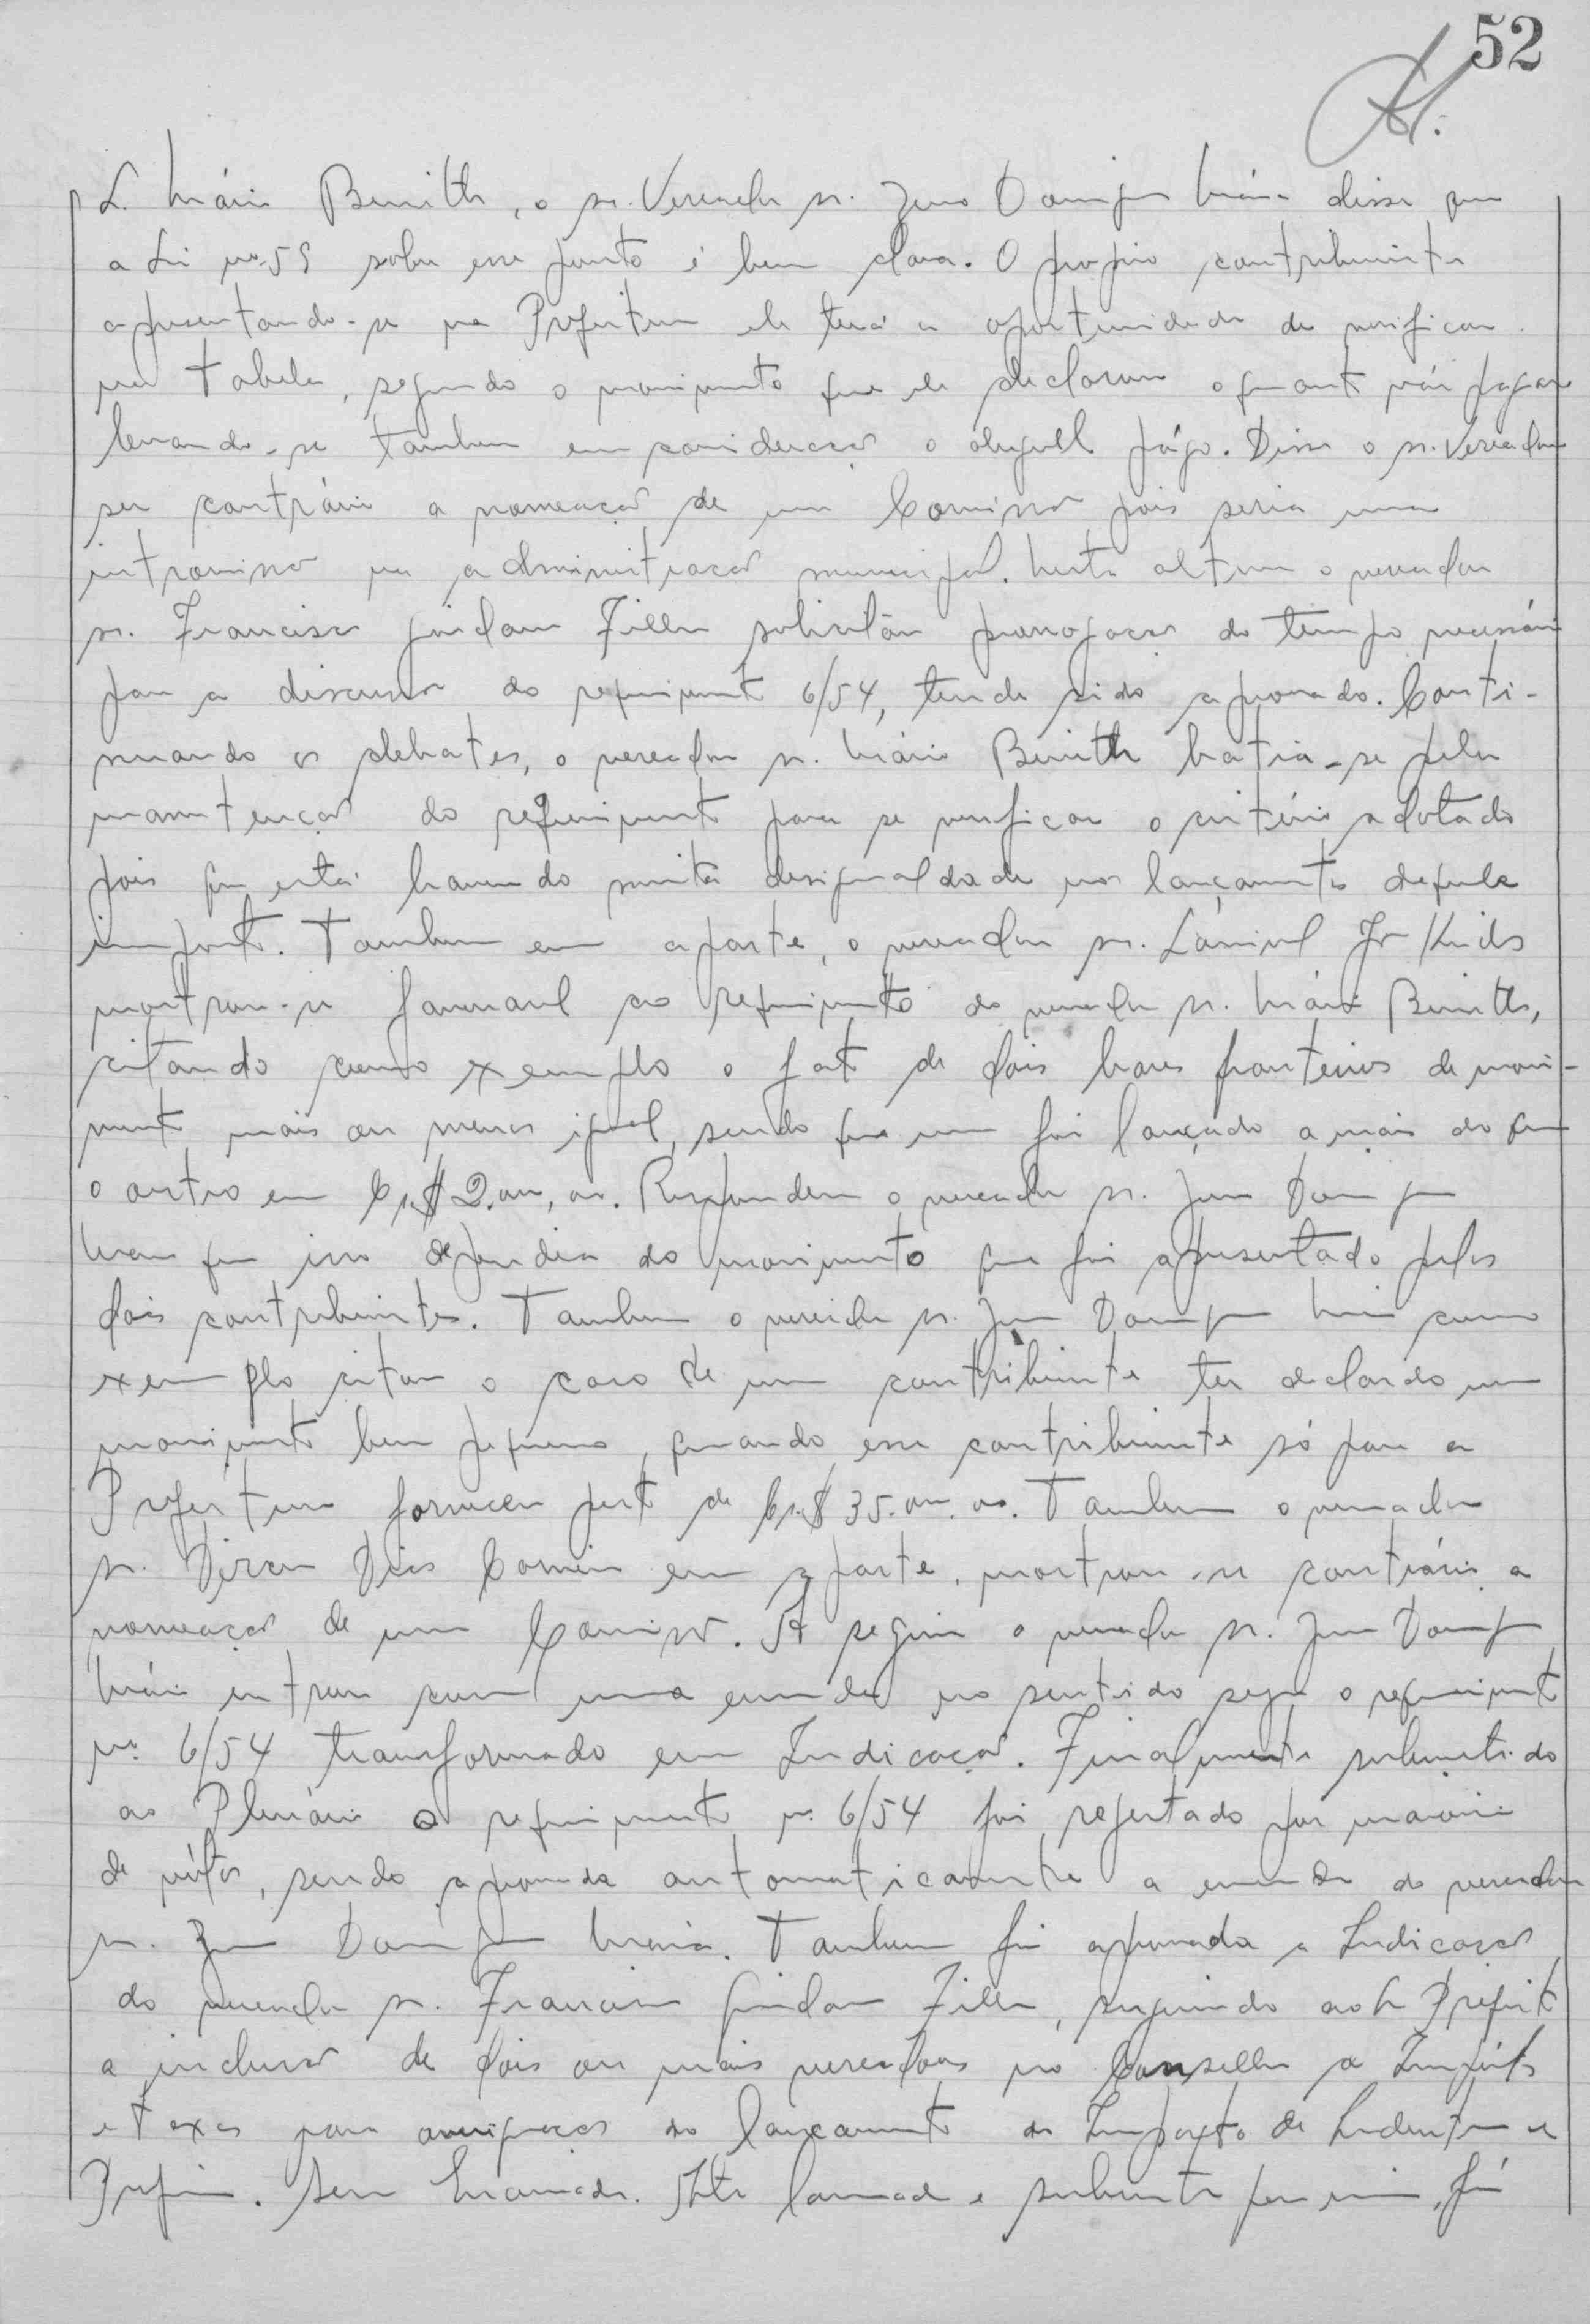 52
sr. Mário Benith, o sr. Vereador sr. Domingos Maia disse que
a Lei nº 59 sobre esse ponto é bem clara. O proprio contribuinte
apresentando-se na Prefeitura ele terá a oportunidade de verificar
na Tabela, segundo o movimento que ele declarou o quanto vai pagar
levando-se tambem em consideração o aluguel págo. Disse o sr. Vereador
ser contrário a nomeação de uma Comissão pois seria uma
intromissão na administração municipal. Nesta altura o vereador
sr. Francisco Filho solicitou prorrogação do tempo necessário
para a discussão do requerimento 6/54, tendo sido aprovado. Conti-
nuando os debates, o vereador sr. Mário Benith batia-se pela
manutenção do requerimento para se verificar o critério adotado
pois que está havendo muita desigualdade nos lançamentos daquele
imposto. Tambem em aparte, o vereador sr.
mostrou-se favoravel ao requerimento do vereador sr. Mário Benith,
citando como exemplo o fato de dois bares fronteiros de movi-
mento mais ou menos igual, sendo que um foi lançado a mais do que
o outro em Cr.$ 2.000,00. Respondeu o vereador sr. Domingos
Maia que isso dependia do movimento que foi apresentado pelos
dois contribuintes. Tambem o vereador sr. Domingos Maia como
exemplo citou o caso de um contribuinte ter declarado um
movimento bem pequeno, quando esse contribuinte só para a
Prefeitura forneceu perto de Cr.$ 35.000,00. Tambem o vereador
sr. Dirceu Dias em aparte, mostrou-se contrário a
nomeação de uma Comissão. A seguir o vereador sr. Domingos
Maia entrou com uma emenda no sentido seja o requerimento
nº 6/54 transformado em Indicação. Finalmente submetido
ao Plenário o requerimento nº 6/54 foi rejeitado por maioria
de vótos, sendo aprovada automaticamente a emenda do vereador
sr. Domingos Maia. Tambem foi aprovada a Indicação
do vereador sr. Francisco Filho, sugerindo ao sr. Prefeito
a inclusão de dois ou mais vereadores no Conselho de Impóstos
e Taxas para averiguação do lançamento do Imposto de Industria e
Profissão. Sem Emenda. Ata lavrada e subscrita por mim,